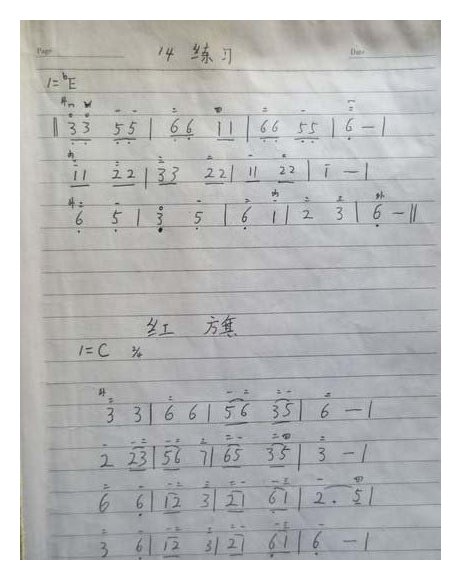 Page 14 练习 Date
1=bE
‖ 3 3 5 5 | 6 6 1 1 | 6 6 5 5 | 6 — |
1 1 2 2 | 3 3 2 2 | 1 1 2 2 | 1 — |
6 5 | 3 5 | 6 1 | 2 3 | 6 — ‖
红 方
1=C 2/4
3 3 | 6 6 | 5 6 3 5 | 6 — |
2 2 3 | 5 6 7 | 6 5 3 5 | 3 — |
6 6 | 1 2 3 | 2 1 6 1 | 2 . 5 |
3 6 | 1 2 3 | 2 1 6 1 | 6 — |